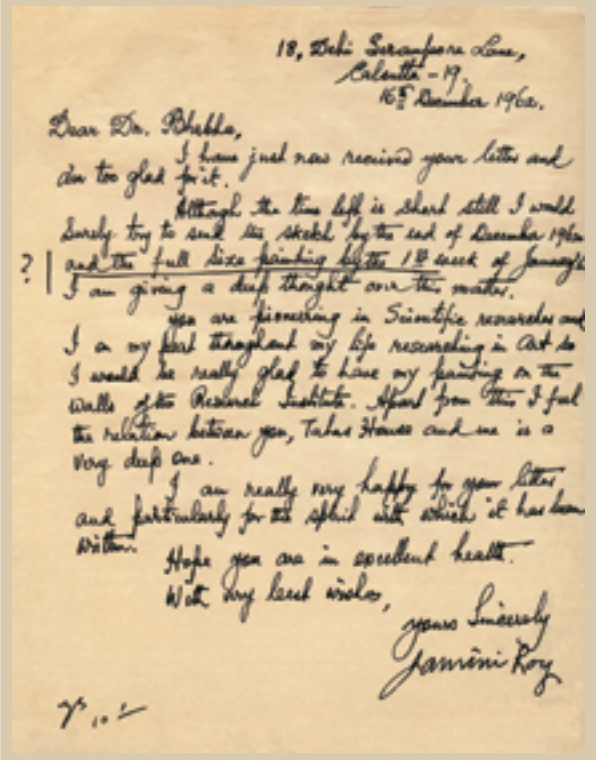 18, Dehi Serampore Lane,
Calcutta - 19.
16th December 1962.
Dear Dr. Bhabha,
I have just now received your letter and
am too glad for it.
Although the time left is short still I would
surely try to send the sketch by the end of December 1962
?
and the full size painting by the 1st week of January
I am giving a deep thought over this matter.
you are pioneering in Scientific researches and
I on my part throughout my life researching in Art so
I would be really glad to have my painting on the
walls of the Research Institute. Apart from this I feel
the relation between you, Tatas House and me is a
very deep one.
I am really very happy for your letter
and particularly for the spirit with which it has been
written.
Hope you are in excellent health.
With very best wishes,
yours Sincerely
Jamini Roy